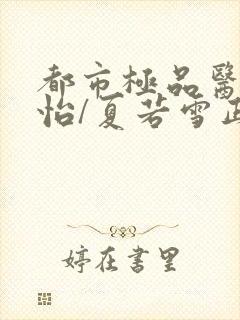 都市極品醫
怡/夏若雪正
婷在書里